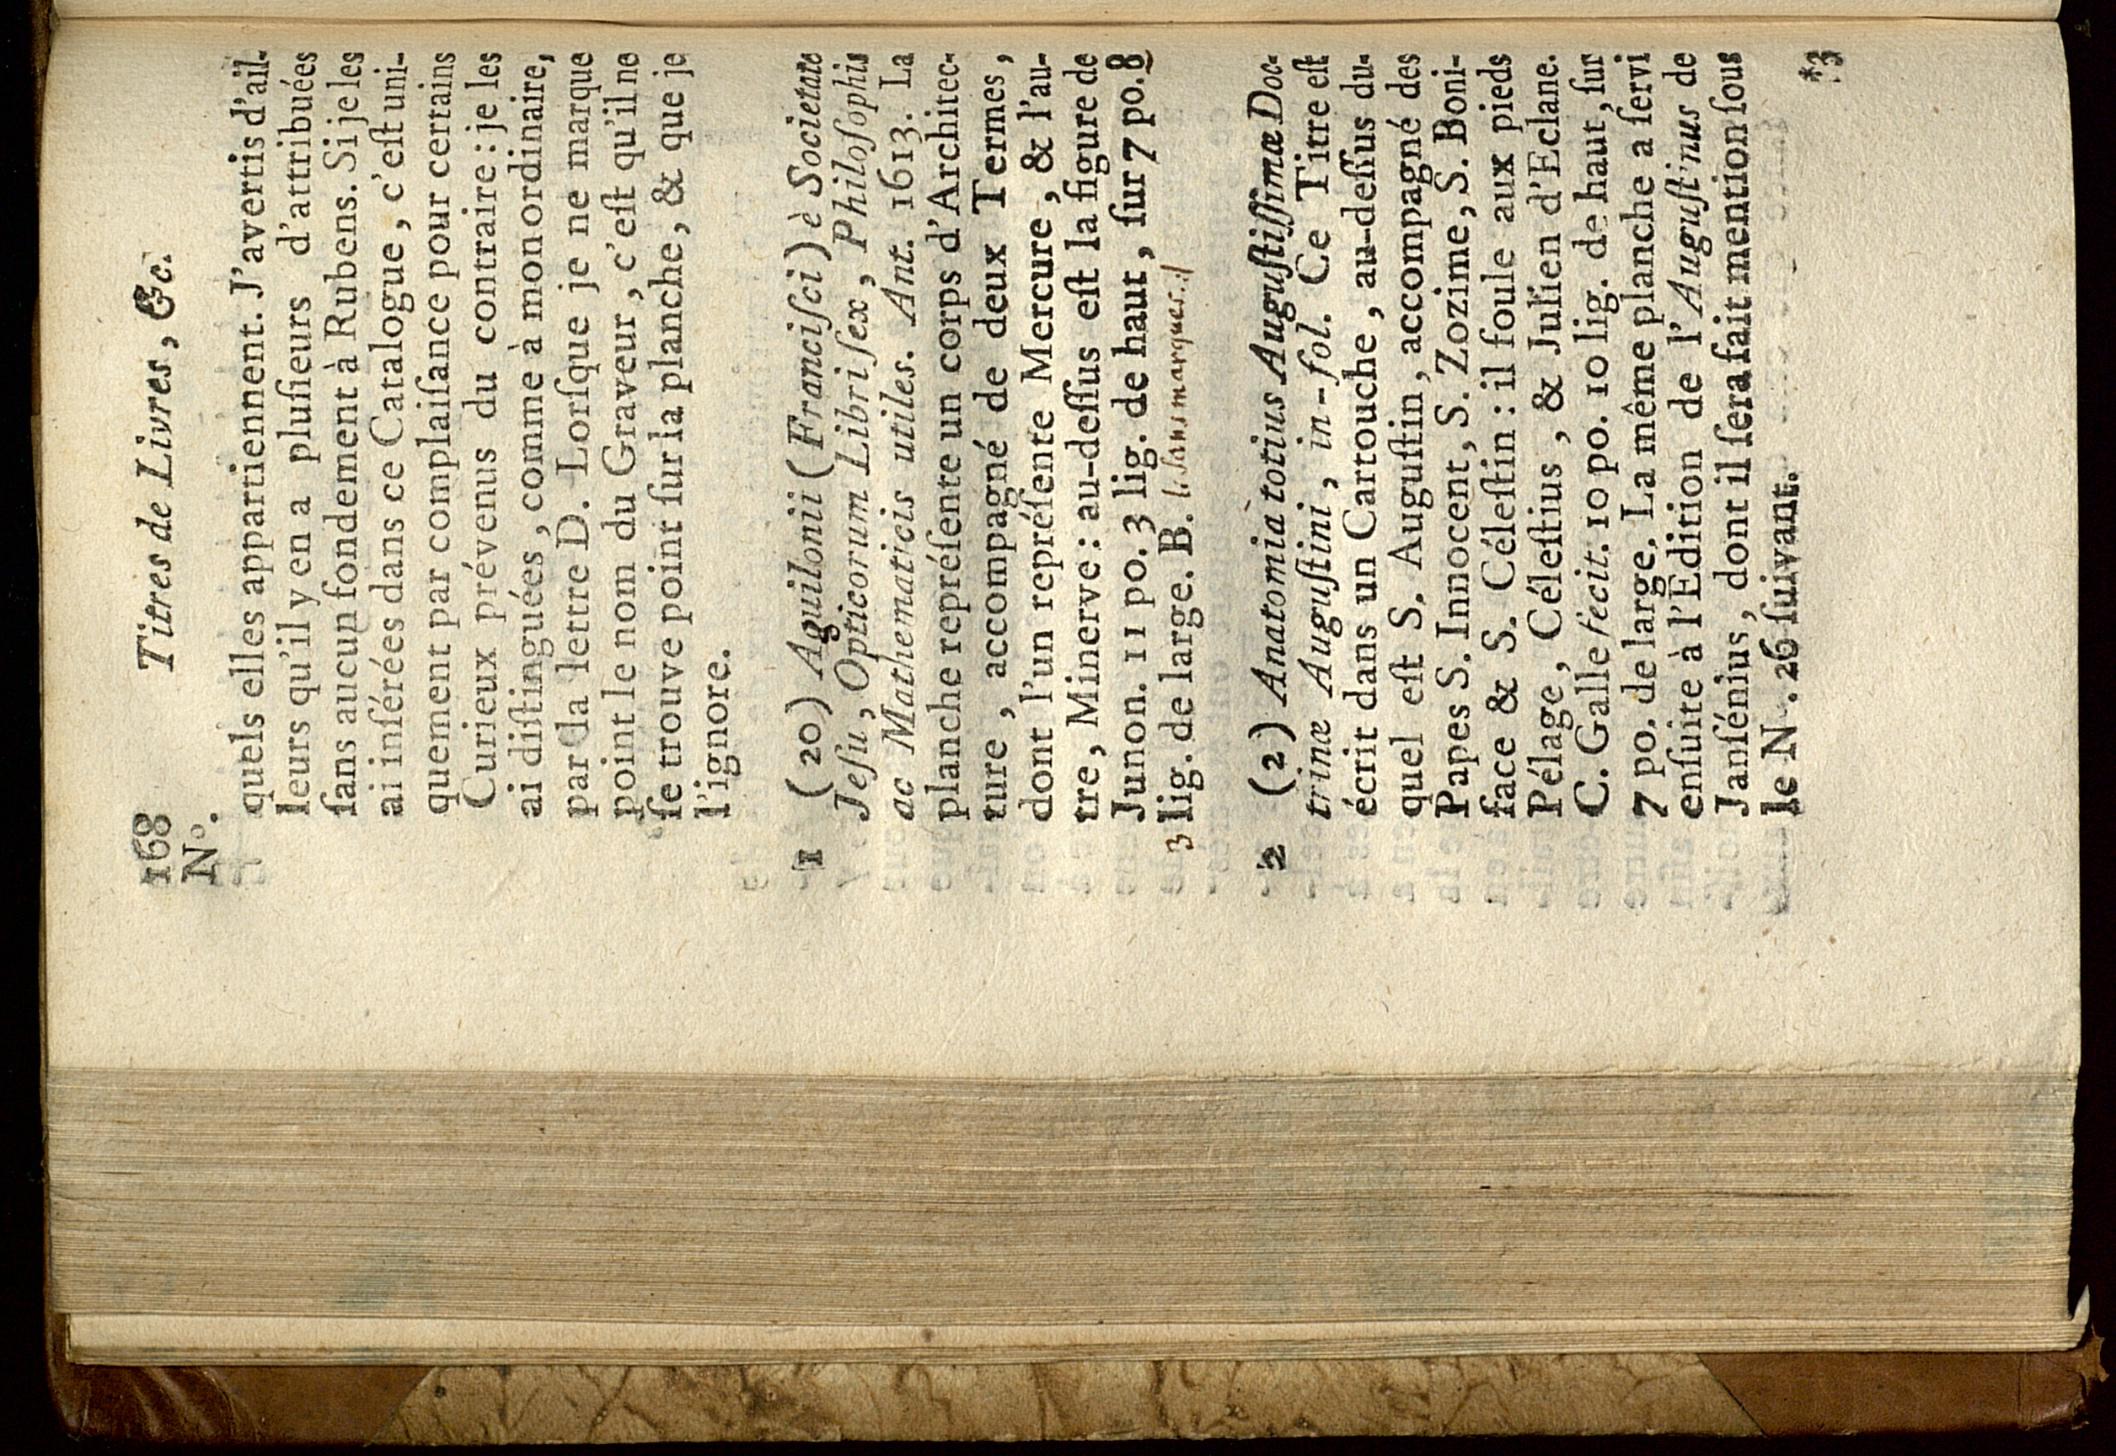 168 Titres de Livres, &c.
N°.
quels elles appartiennent. J'avertis d'ail-
leurs qu'il y en a plusieurs d'attribuées
sans aucun fondement à Rubens. Si je les
ai insérées dans ce Catalogue, c'est uni-
quement par complaisance pour certains
Curieux prévenus du contraire: je les
ai distinguées, comme à mon ordinaire,
par la lettre D. Lorsque je ne marque
point le nom du Graveur, c'est qu'il ne
se trouve point sur la planche, & que je
l'ignore.
1 (20) Aguilonii (Francisci) è Societate
Jesu, Opticorum Libri sex, Philosophis
ac Mathematicis utiles. Ant. 1613. La
planche représente un corps d'Architec-
ture, accompagné de deux Termes,
dont l'un représente Mercure, & l'au-
tre, Minerve: au-dessus est la figure de
Junon. 11 po. 3 lig. de haut, sur 7 po. 8
3 lig. de large. B. (: sans marques :)
2 (2) Anatomia totius Augustissimæ Doc-
trinæ Augustini, in-fol. Ce Titre est
écrit dans un Cartouche, au-dessus du-
quel est S. Augustin, accompagné des
Papes S. Innocent, S. Zozime, S. Boni-
face & S. Célestin: il foule aux pieds
Pélage, Célestius, & Julien d'Eclane.
C. Galle fecit. 10 po. 10 lig. de haut, sur
7 po. de large. La même planche a servi
ensuite à l'Edition de l'Augustinus de
Jansénius, dont il sera fait mention sous
le N. 26 suivant.
*3